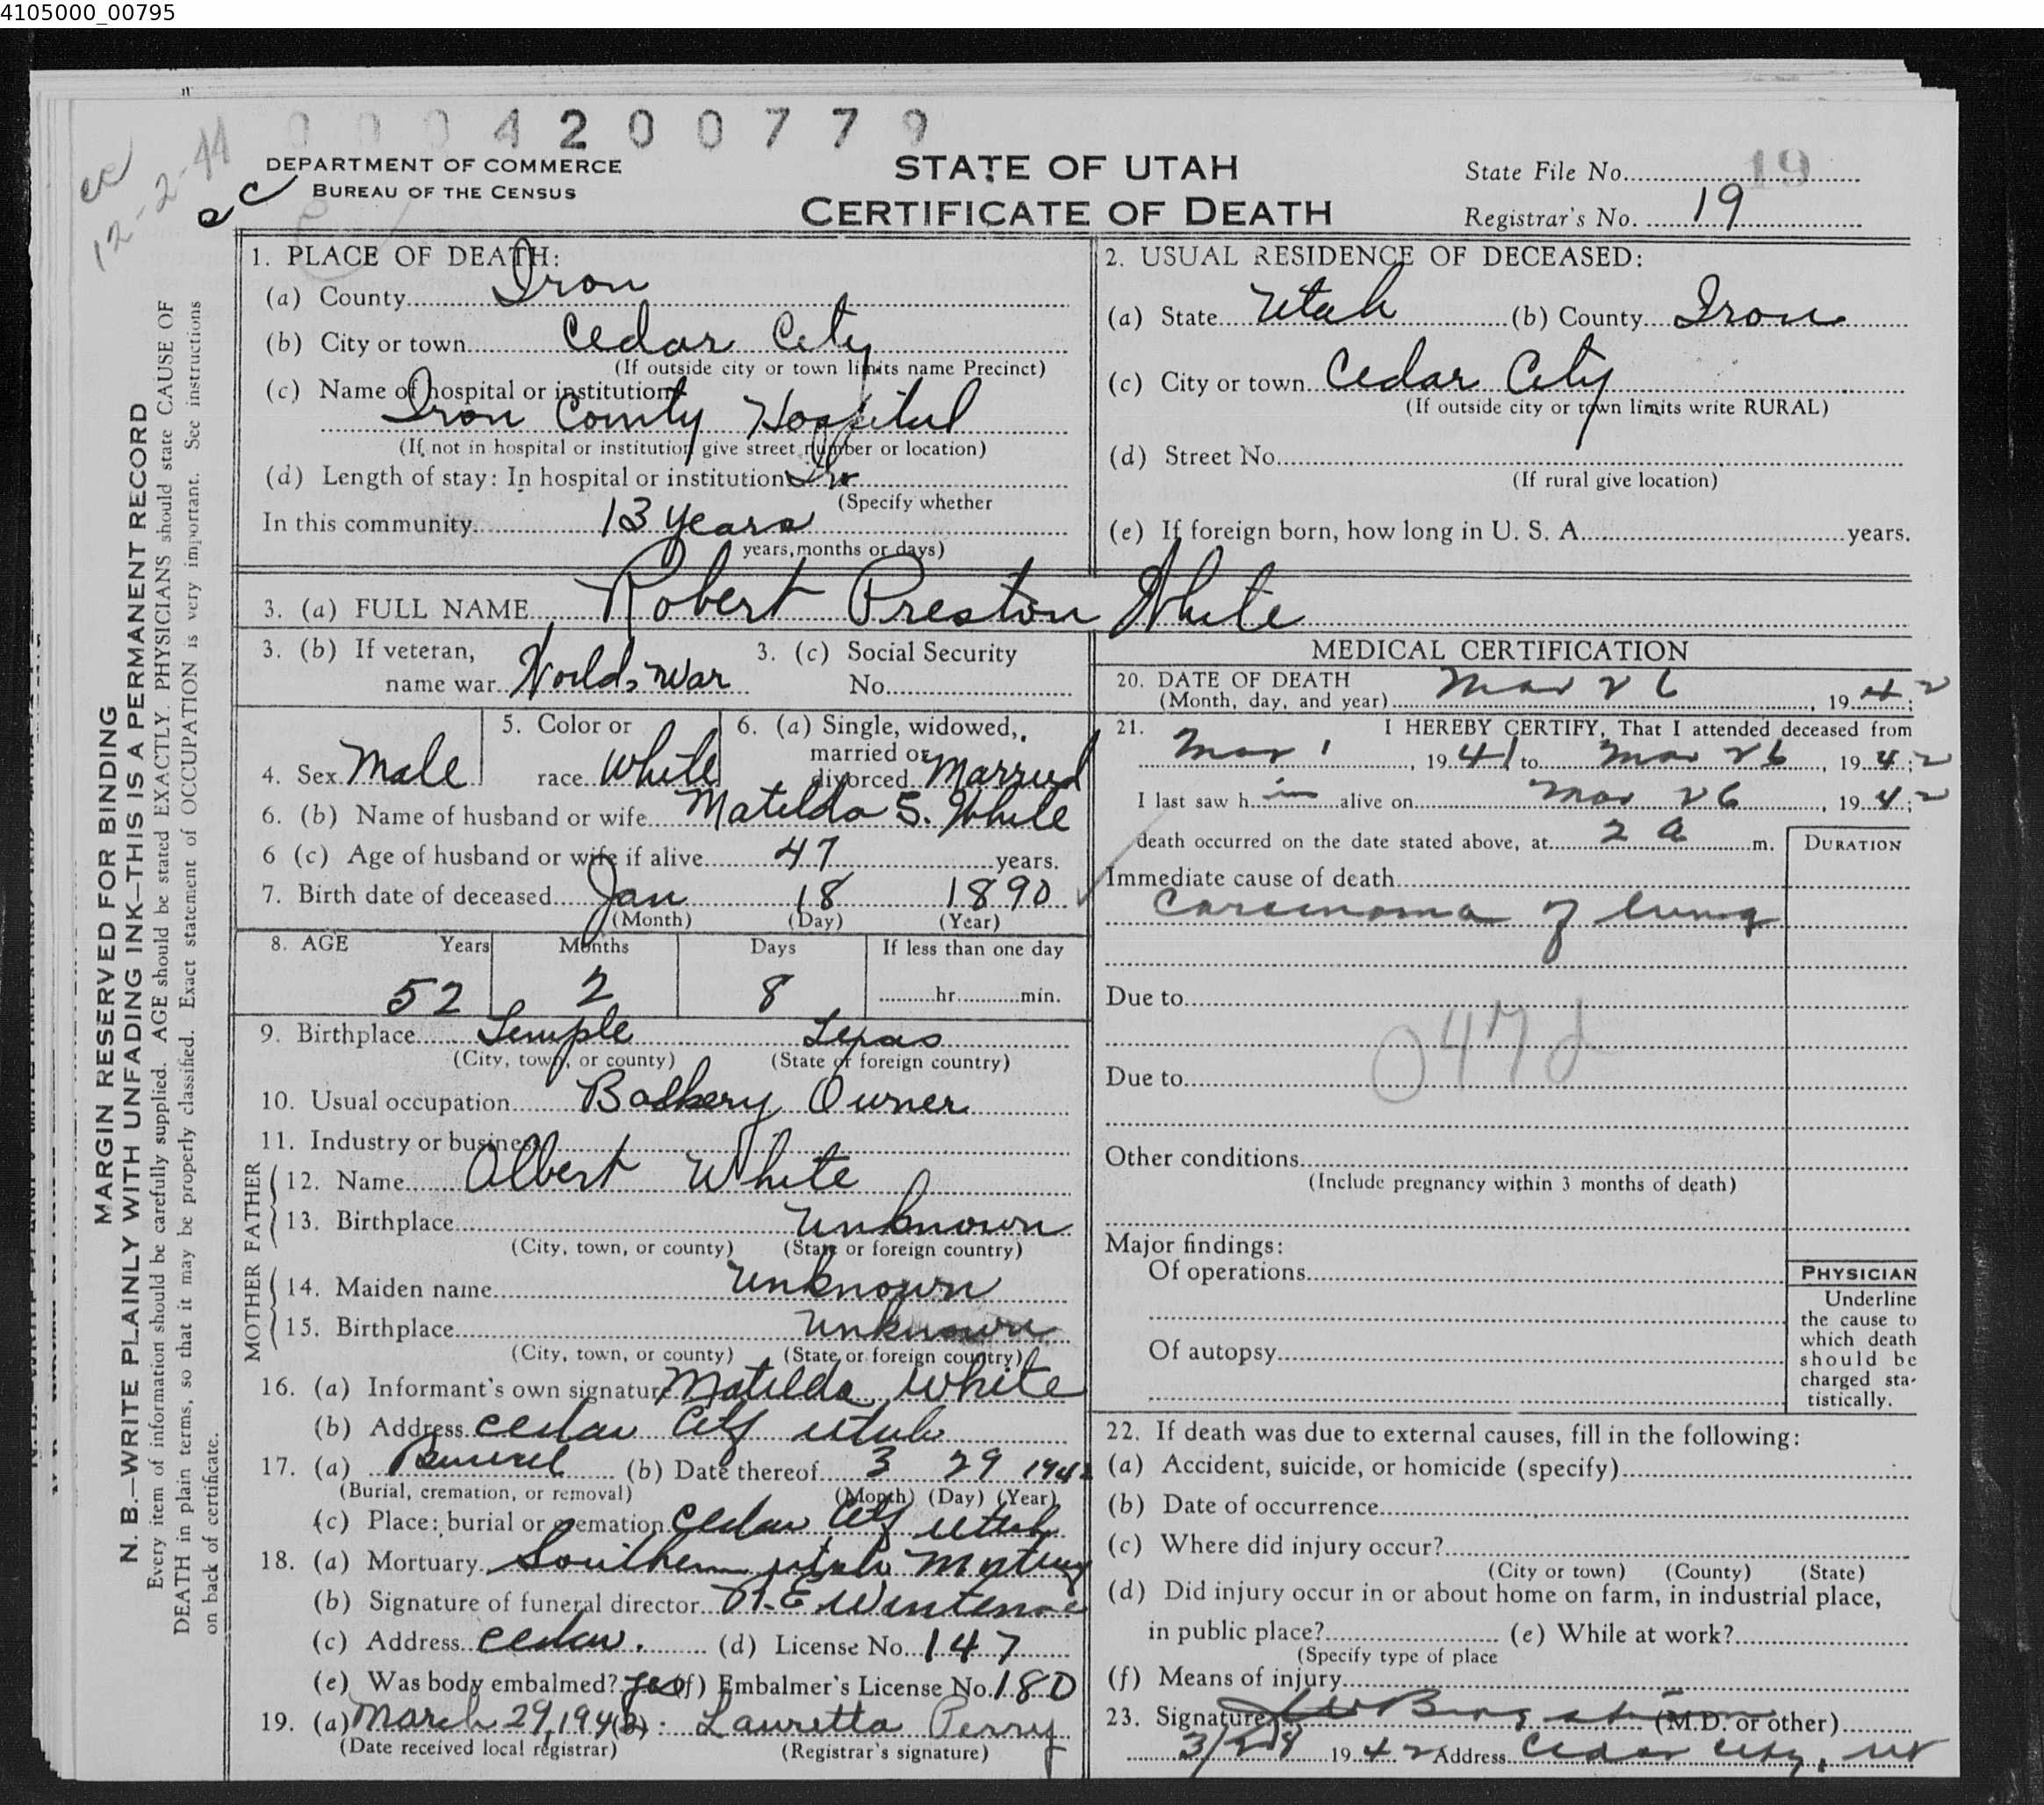 4105000_00795
0004200779
cc
12-2-44
cc
DEPARTMENT OF COMMERCE
BUREAU OF THE CENSUS
STATE OF UTAH
CERTIFICATE OF DEATH
State File No. 19
Registrar's No. 19
MARGIN RESERVED FOR BINDING
N. B.—WRITE PLAINLY WITH UNFADING INK—THIS IS A PERMANENT RECORD
Every item of information should be carefully supplied. AGE should be stated EXACTLY. PHYSICIANS should state CAUSE OF
DEATH in plain terms, so that it may be properly classified. Exact statement of OCCUPATION is very important. See instructions
on back of certificate.
1. PLACE OF DEATH:
(a) County Iron
(b) City or town Cedar City
(If outside city or town limits name Precinct)
(c) Name of hospital or institution
Iron County Hospital
(If not in hospital or institution give street number or location)
(d) Length of stay: In hospital or institution
(Specify whether
In this community 13 years
years, months or days)
2. USUAL RESIDENCE OF DECEASED:
(a) State Utah (b) County Iron
(c) City or town Cedar City
(If outside city or town limits write RURAL)
(d) Street No.
(If rural give location)
(e) If foreign born, how long in U. S. A. years.
3. (a) FULL NAME Robert Preston White
3. (b) If veteran,
name war World War
3. (c) Social Security
No.
4. Sex Male
5. Color or
race White
6. (a) Single, widowed,
married or
divorced Married
6. (b) Name of husband or wife Matilda S. White
6 (c) Age of husband or wife if alive 47 years.
7. Birth date of deceased Jan 18 1890
(Month) (Day) (Year)
8. AGE Years Months Days If less than one day
52 2 8 hr. min.
9. Birthplace Temple Texas
(City, town, or county) (State or foreign country)
10. Usual occupation Backery Owner
11. Industry or business
FATHER
12. Name Albert White
13. Birthplace Unknown
(City, town, or county) (State or foreign country)
MOTHER
14. Maiden name Unknown
15. Birthplace Unknown
(City, town, or county) (State or foreign country)
16. (a) Informant's own signature Matilda White
(b) Address Cedar City Utah
17. (a) Burial (b) Date thereof 3 29 1942
(Burial, cremation, or removal) (Month) (Day) (Year)
(c) Place: burial or cremation Cedar City Utah
18. (a) Mortuary Southern Utah Mortuary
(b) Signature of funeral director
(c) Address Cedar. (d) License No. 147
(e) Was body embalmed? yes (f) Embalmer's License No. 180
19. (a) March 29, 1942 (b) Lauretta Perry
(Date received local registrar) (Registrar's signature)
MEDICAL CERTIFICATION
20. DATE OF DEATH
(Month, day, and year) Mar 26, 1942;
21. I HEREBY CERTIFY, That I attended deceased from
Mar 1, 1941 to Mar 26, 1942;
I last saw h im alive on Mar 26, 1942;
death occurred on the date stated above, at 2 a m.
DURATION
Immediate cause of death
Carcinoma of lung
Due to
047d
Due to
Other conditions
(Include pregnancy within 3 months of death)
Major findings:
Of operations
Of autopsy
PHYSICIAN
Underline
the cause to
which death
should be
charged sta-
tistically.
22. If death was due to external causes, fill in the following:
(a) Accident, suicide, or homicide (specify)
(b) Date of occurrence
(c) Where did injury occur?
(City or town) (County) (State)
(d) Did injury occur in or about home on farm, in industrial place,
in public place? (e) While at work?
(Specify type of place
(f) Means of injury
23. Signature (M.D. or other)
1942 Address Cedar City, Ut